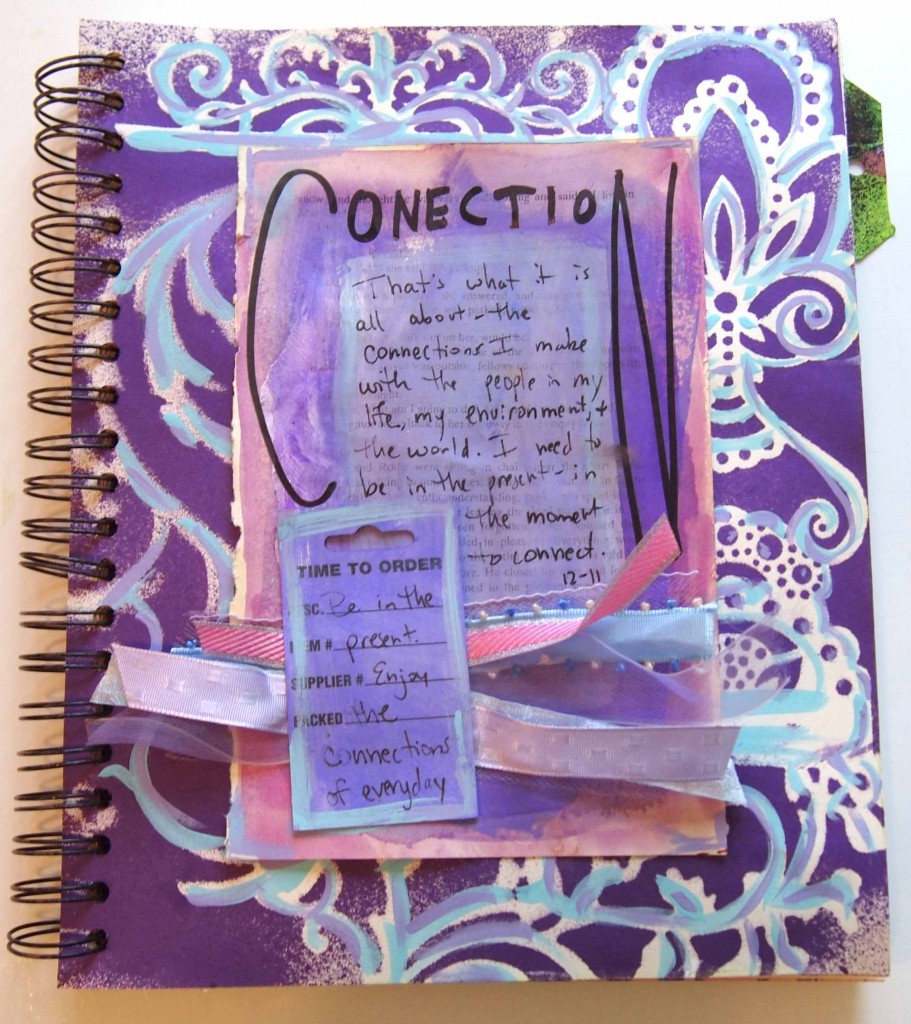 CONECTION
That's what it is
all about - the
connections I make
with the people in my
life, my environment, +
the world. I need to
be in the present - in
the moment
to connect.
12-11
TIME TO ORDER
SC. Be in the
EM # present.
SUPPLIER # Enjoy
PACKED the
connections
of everyday